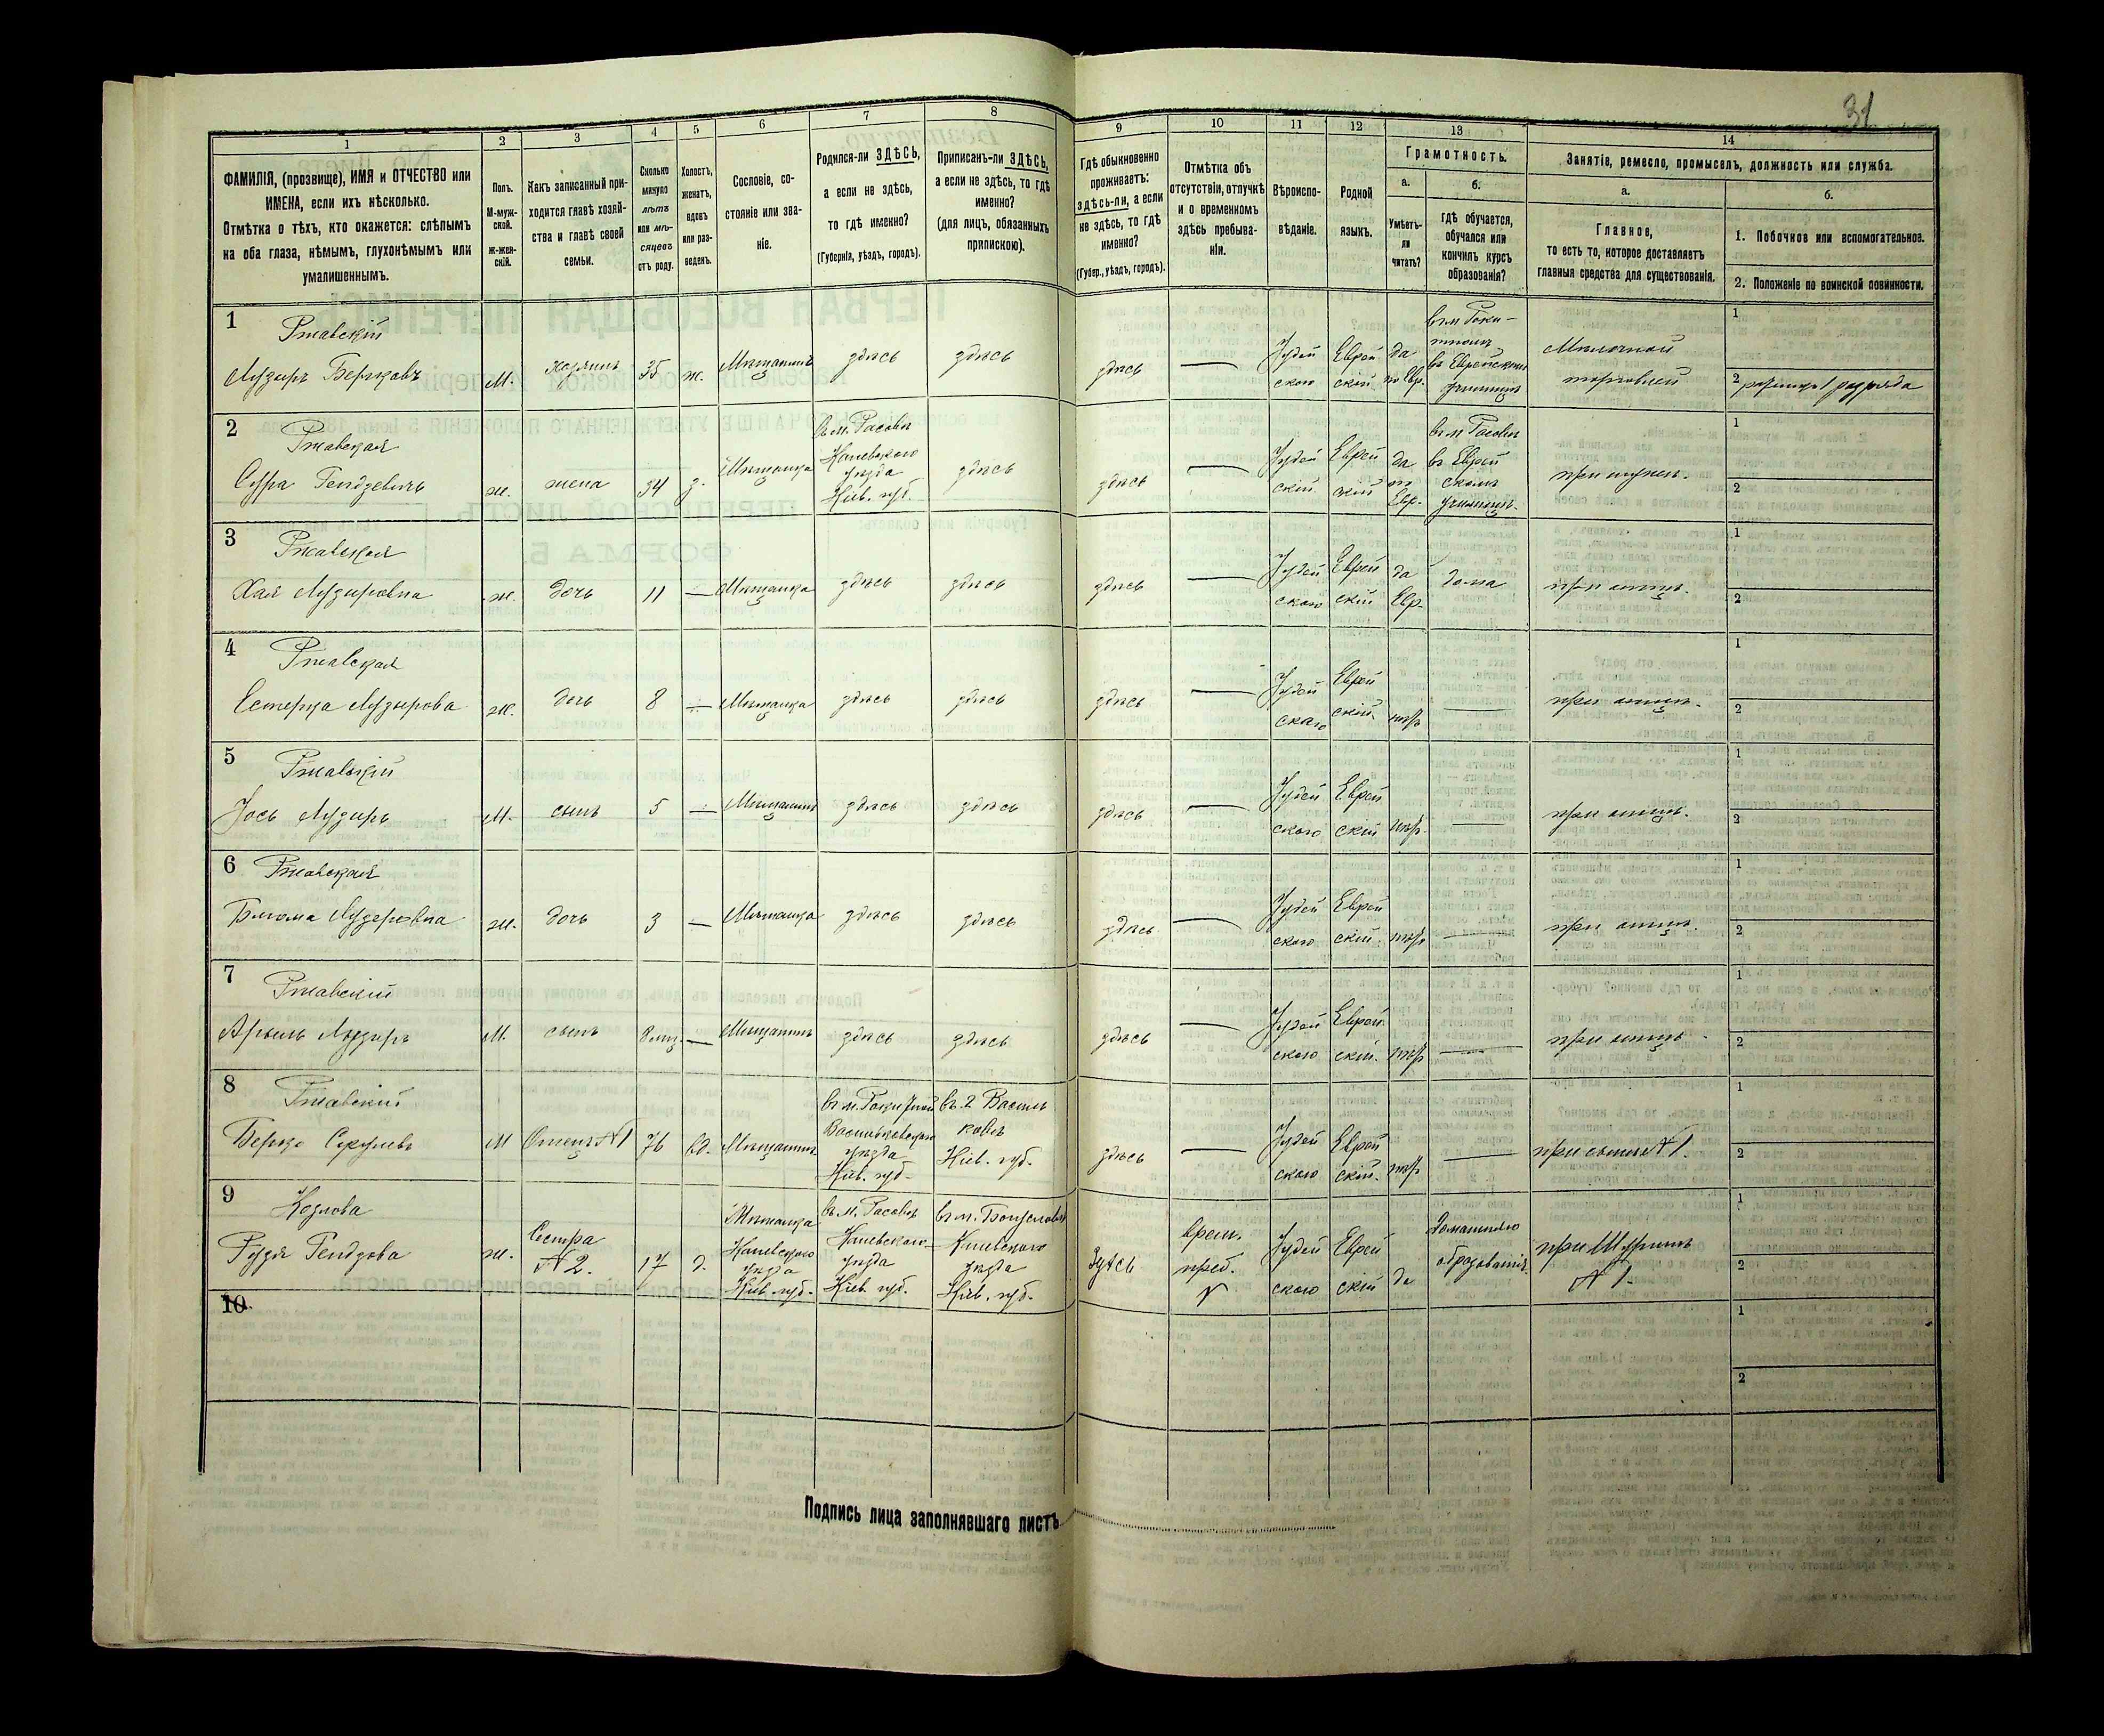 31
1 2 3 4 5 6 7 8 9 10 11 12 13 14
ФАМИЛІЯ, (прозвище), ИМЯ и ОТЧЕСТВО или
ИМЕНА, если ихъ нѣсколько.
Отмѣтка о тѣхъ, кто окажется: слѣпымъ
на оба глаза, нѣмымъ, глухонѣмымъ или
умалишеннымъ.
Полъ.
М-муж-
ской.
Ж-жен-
скій.
Какъ записанный при-
ходится главѣ хозяй-
ства и главѣ своей
семьи.
Сколько
минуло
лѣтъ
или мѣ-
сяцевъ
отъ роду.
Холостъ,
женатъ,
вдовъ
или раз-
веденъ.
Сословіе, со-
стояніе или зва-
ніе.
Родился-ли ЗДѢСЬ,
а если не здѣсь,
то гдѣ именно?
(Губернія, уѣздъ, городъ).
Приписанъ-ли ЗДѢСЬ,
а если не здѣсь, то гдѣ
именно?
(для лицъ, обязанныхъ
припискою).
Гдѣ обыкновенно
проживаетъ:
здѣсь-ли, а если
не здѣсь, то гдѣ
именно?
(Губер., уѣздъ, городъ).
Отмѣтка объ
отсутствіи, отлучкѣ
и о временномъ
здѣсь пребыва-
ніи.
Вѣроиспо-
вѣданіе.
Родной
языкъ.
Грамотность.
а.
Умѣетъ-
ли
читать?
б.
гдѣ обучается,
обучался или
кончилъ курсъ
образованія?
Занятіе, ремесло, промыселъ, должность или служба.
а.
Главное,
то есть то, которое доставляетъ
главныя средства для существованія.
б.
1. Побочное или вспомогательное.
2. Положеніе по воинской повинности.
1
Ржавскій
Лузиръ Берковъ
М. хозяинъ 35 ж. Мѣщанинъ здѣсь здѣсь
здѣсь — Іудей
ского Еврей
скій да
по Евр.
въ Еврейскомъ
училищѣ
Мѣлочной
торговлей
1
2
2
Ржавская
Сура
ж. жена 34 з. Мѣщанка
въ м. Расовѣ
Каневского
уѣзда
Кіев. губ.
здѣсь
здѣсь — Іудей
скій Еврей
скій да
по
Евр.
въ м Расовѣ
въ Еврей
скомъ
училищѣ.
при мужѣ.
1
2
3
Ржавская
Хая Лузировна
ж. дочь 11 — Мѣщанка здѣсь здѣсь
здѣсь — Іудей
ского Еврей
скій да
Евр. дома при отцѣ.
1
2
4
Ржавская
Естерка Лузирова
ж. дочь 8 — Мѣщанка здѣсь здѣсь
здѣсь — Іудей
ского Еврей
скій. — при отцѣ.
1
2
5
Ржавскій
Іось Лузиръ
М. сынъ 5 — Мѣщанинъ здѣсь здѣсь
здѣсь — Іудей
ского Еврей
скій — при отцѣ.
1
2
6
Ржавская
Блюма Лузеровна
ж. дочь 3 — Мѣщанка здѣсь здѣсь
здѣсь — Іудей
ского Еврей
скій. — при отцѣ.
1
2
7
Ржавскій
Лузиръ
М. сынъ 8 мц. — Мѣщанинъ здѣсь здѣсь
здѣсь — Іудей
ского Еврей
скій. — при отцѣ
1
2
8
Ржавскій
Берко
М Отецъ № 1 76 вд. Мѣщанинъ
Васильковскаго
уѣзда
Кіев. губ.
въ. г. Василь
ковѣ
Кіев. губ.
здѣсь — Іудей
ского Еврей
скій. — при сынѣ № 1.
1
2
9
Козлова
ж. Сестра
№ 2. 17 д.
Мѣщанка
Каневского
уѣзда
Кіев. губ.
въ м. Расовѣ
Каневского
уѣзда
Кіев. губ.
въ м. Богуславѣ
Каневского
уѣзда
Кіев. губ.
здѣсь
врем.
преб.
Іудей
ского Еврей
скій да
Домашнего
образованія.
при Шуринѣ
№ 1.
1
2
10.
1
2
Подпись лица заполнявшаго листъ